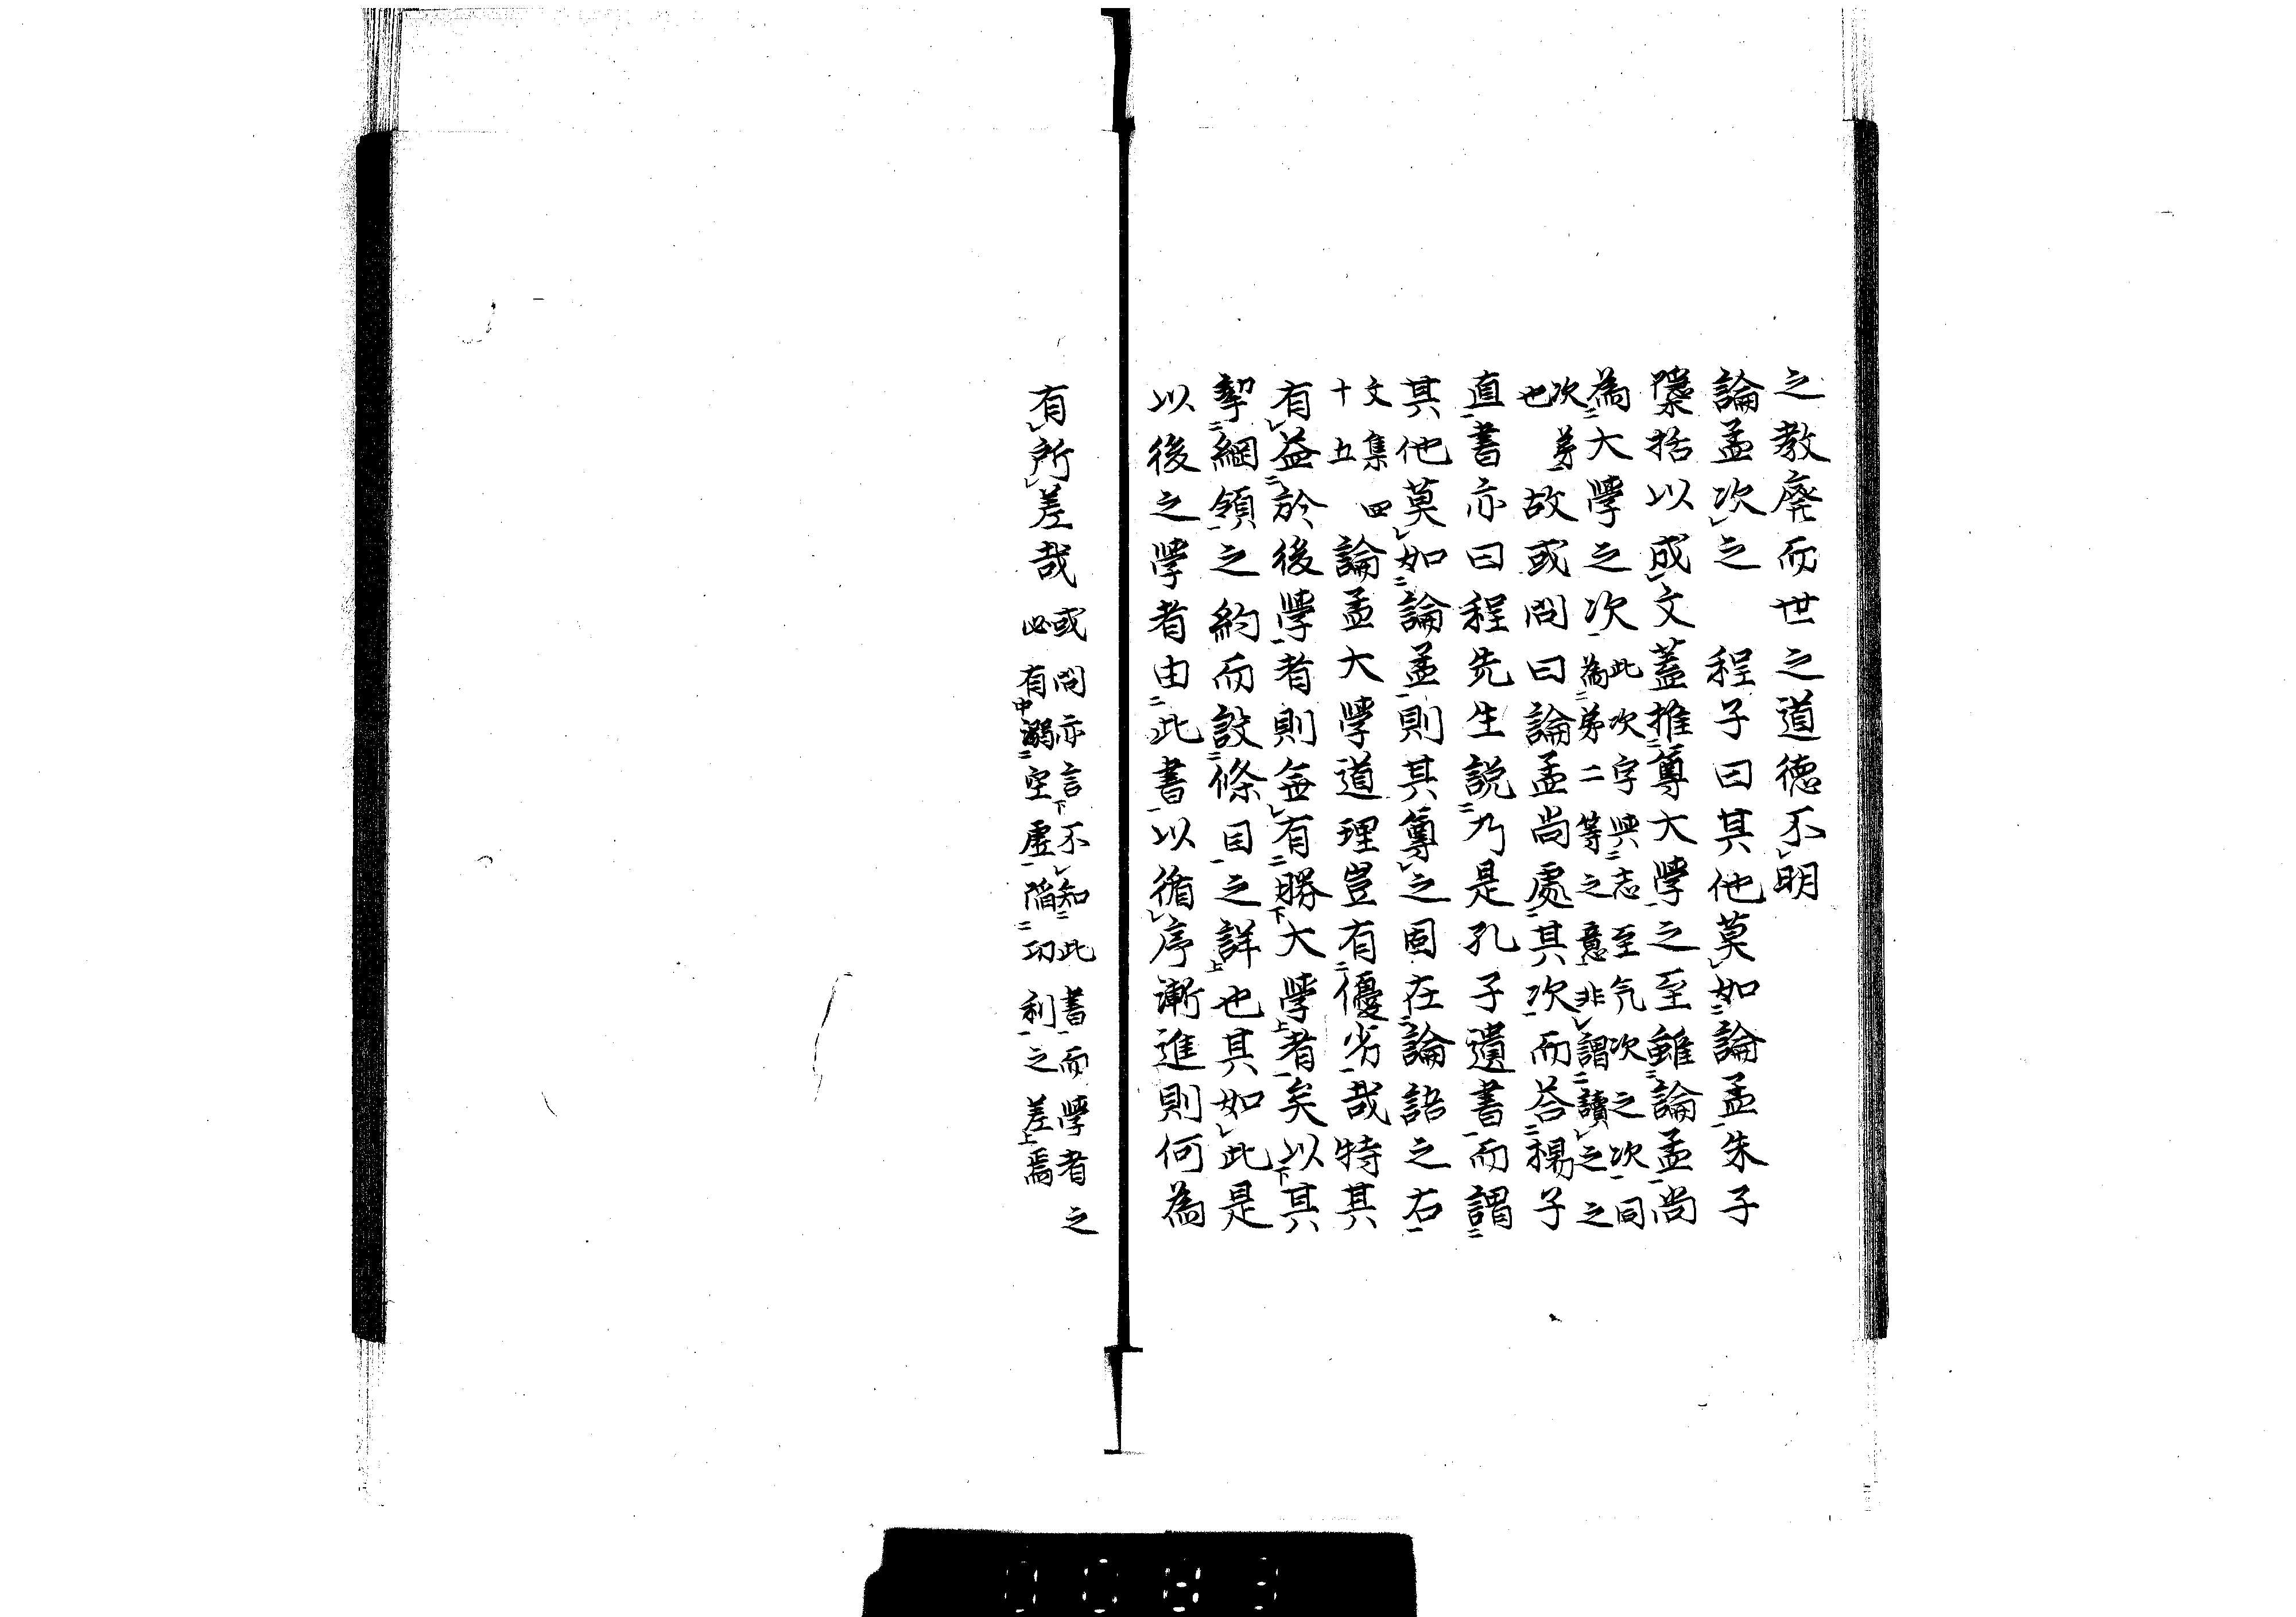 之教廢而世之道德不明
論孟次之　程子曰其他莫如論孟朱子
檃括以成文蓋推尊大學之至雖論孟尚
為大學之次此次字與志至氣次之次同為第二等之意非謂讀之之
次第也故或問曰論孟尚處其次而答楊子
直書亦曰程先生説乃是孔子遺書而謂
其他莫如論孟則其尊之固在論語之右
文集四十五論孟大學道理豈有優劣哉特其
有益於後學者則無有勝大學者矣以其
挈綱領之約而設條目之詳也其如此是
以後之學者由此書以循序漸進則何為
有所差哉或問亦言不知此書而學者之必有溺空虛陷功利之差焉